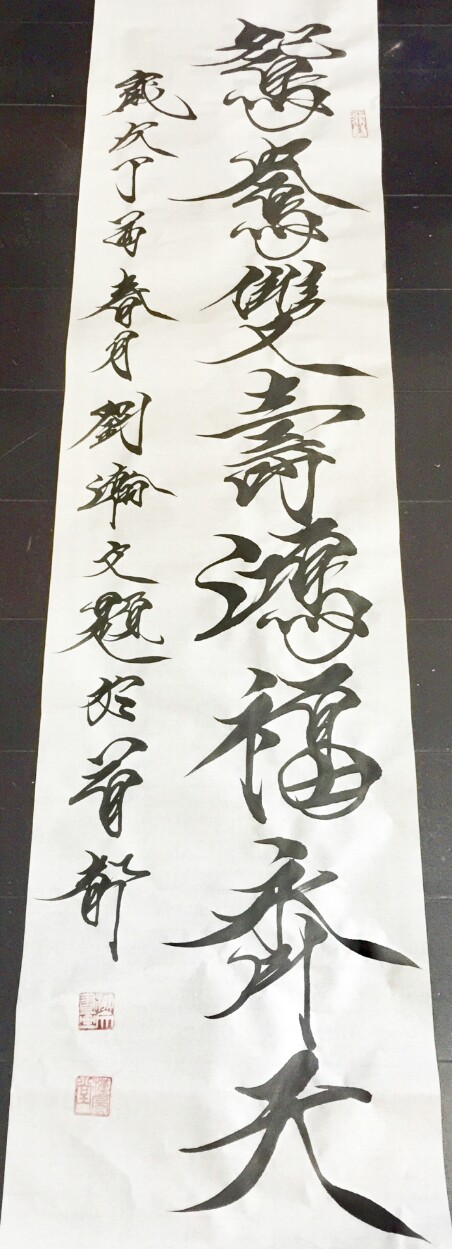 鴛鴦雙壽鴻福齊天
歲次丁酉春月劉瀚文題於首都